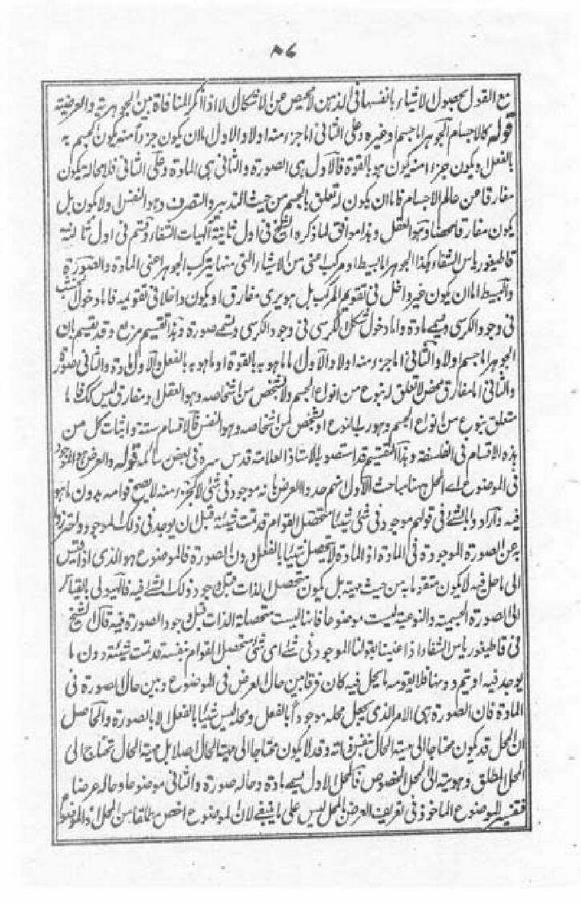 ٨٦
مع القول بحصول الاشياء بانفسها فى الذهن لا محيص عن الاشكال الا اذا انكر المنافاة بين الجوهرية والعرضية
قوله كالاجسام الجوهر اما جسم او غيره وعلى الثانى اما جزء منه اولا والاول بان يكون جزء منه يكون الجسم به
بالفعل ويكون جزء منه يكون هو بالقوة فالاول هى الصورة والثانى هى المادة وعلى الثانى فلا محالة يكون
مفارقا عن عالم الاجسام فاما ان يكون له تعلق بالجسم من حيث التدبير والتصرف وهو النفس اولا يكون بل
يكون مفارقا محضا وهو العقل وهذا موافق لما ذكره الشيخ فى اول ثانية الهيات الشفاء وقسم فى اول ثالثة
قاطيغورياس الشفاء هكذا الجوهر اما بسيط او مركب اعنى من الاشياء التى منها يتركب الجوهر اعنى المادة والصورة
والبسيط اما ان يكون غير داخل فى تقويم المركب بل هو برى مفارق او يكون داخلا فى تقويمه فاما دخول الخشب
فى وجود الكرسى ويسمى مادة واما دخول شكل الكرسى فى وجود الكرسى ويسمى صورة وهذا تقسيم مربع وقد يقسم بان
الجوهر اما جسم اولا والثانى اما جزء منه اولا والاول اما ما هو به بالقوة او ما هو به بالفعل والاول مادة والثانى صورة
والثانى اما مفارق محض لا تعلق له بنوع من انواع الجسم ولا بشخص من اشخاصه وهو العقل ومفارق ليس كذلك فاما
متعلق بنوع من انواع الجسم وهو رب النوع او بشخص من اشخاصه وهو النفس فالاقسام ستة واثبات كل من
هذه الاقسام فى الفلسفة وهذا التقسيم قد استصوبه الاستاذ العلامة قدس سره فى بعض رسائله قوله والعرض هو الموجود
فى الموضوع اى المحل ههنا مباحث الاول انهم حدوا العرض بانه موجود فى شئ لا كجزء منه لا يصح قوامه بدون ما هو
فيه وارادوا بالشئ فى قولهم موجود فى شئ شيئا متحصل القوام قد تمت شيئيته قبل ان يوجد فى ذلك الموجود واحترزوا
به عن الصورة الموجودة فى المادة اذ المادة لا يتحصل شيئا بالفعل دون الصورة فالموضوع هو الذى اذا قيس
الى ما حل فيه لا يكون متقوما به من حيث هو به بل يكون متحصل الذات قبل وجود ذلك الشئ فيه فالهيولى بالقياس
الى الصورة الجسمية والنوعية ليست موضوعا فانها ليست متحصلة الذات قبل وجود الصورة فيه قال الشيخ
فى قاطيغورياس الشفاء اذا عنينا بقولنا الموجود فى شئ اى شئ متحصل القوام بنفسه قد تمت شيئيته دون ما
يوجد فيه او تتم دونه فلا يقومه ما يحل فيه كان فرقا بين حال العرض فى الموضوع وبين حال الصورة فى
المادة فان الصورة هى الامر الذى يجعل محله موجودا بالفعل ومحله ليس شيئا بالفعل الا بالصورة والحاصل
ان المحل قد يكون محتاجا الى مهية الحال بنفس ذاته وقد لا يكون محتاجا الى مهية الحال اصلا بل مهية الحال تحتاج الى
المحل المطلق وهويته الى المحل المخصوص فالمحل الاول يسمى مادة وحاله صورة والثانى موضوعا وحاله عرضا
فتفسير الموضوع الماخوذ فى تعريف العرض بالمحل ليس على ما ينبغى لان الموضوع اخص مطلقا من المحل والموضوع